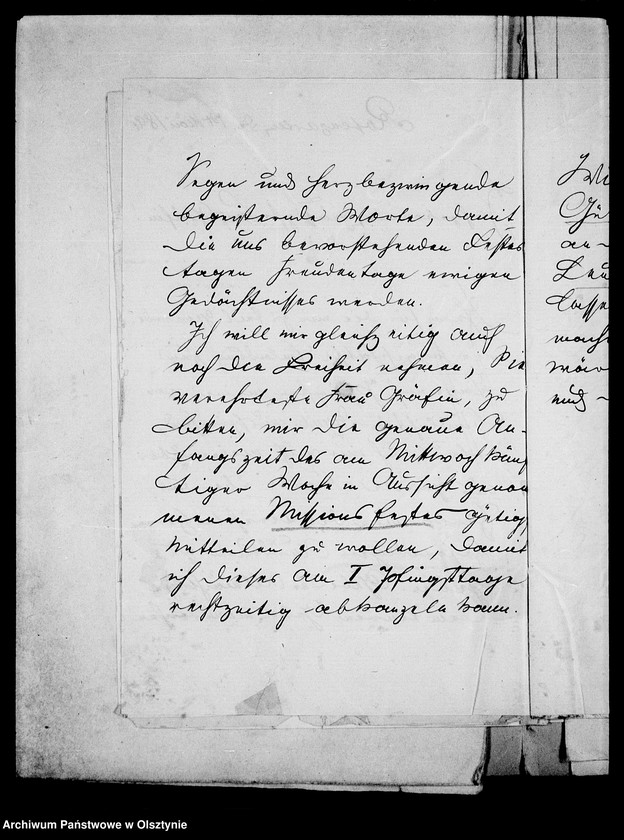 Segen und herzbezwingende
begeisternde Worte, damit
die uns bevorstehenden Festes
tagen Freudentage ewigen
Gedächtnisses werden.
Ich will mir gleichzeitig auch
noch die Freiheit nehmen, Sie
verehrteste Frau Gräfin, zu
bitten, mir die genaue An-
fangszeit des am Mittwoch künf
tiger Woche in Aussicht genom
menen Missionsfestes gütigst
mitteilen zu wollen, damit
ich dieses am I Pfingsttage
rechtzeitig abkanzeln kann.
an-
lasse
und
Archiwum Państwowe w Olsztynie